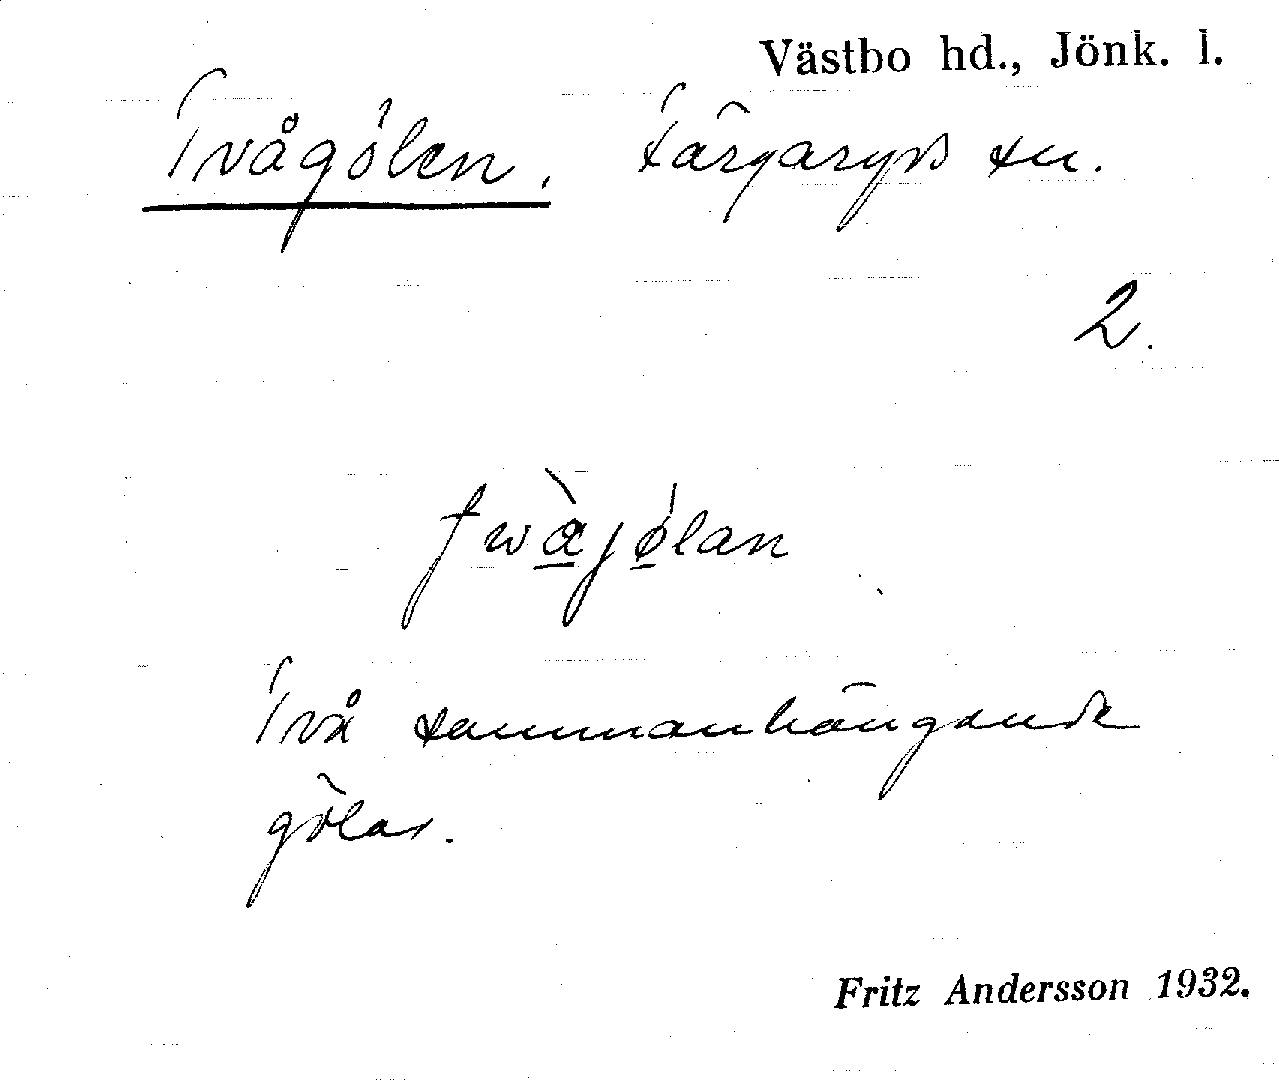 Västbo hd., Jönk. l.
Tvågölen. Färgaryds sn.
2.
Två sammanhängande
gölar.
Fritz Andersson 1932.